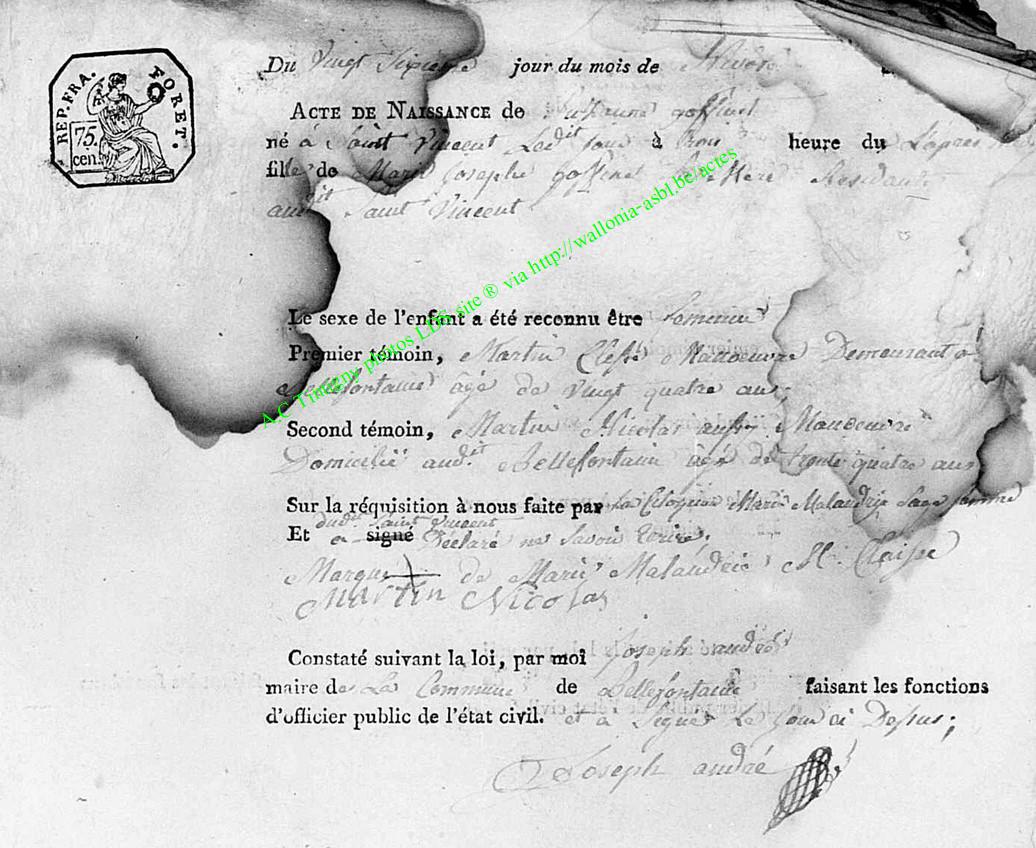 REP. FRA. FORET.
75. cen.
Du Vingt Sixieme jour du mois de
ACTE DE NAISSANCE de goffinet
né à Saint Vincent Ledit jour à trois heure du L'apres
fille de Marie Josephe Goffinet Residante
audit Saint Vincent
Le sexe de l'enfant a été reconnu être femme
Premier témoin, Martin Manoeuvre Demeurant a
Bellefontaine âgé de vingt quatre ans
Second témoin, Martin Nicolas aussy Manoeuvre
Domicilié audit Bellefontaine âgé de trente quatre ans
Sur la réquisition à nous faite par La Citoyenne Marie Malandrie Sage femme
dudit Saint Vincent
Et a signé Déclaré ne Savoir Ecrire,
Marque de Marie Malandrie M:
Martin Nicolas
Constaté suivant la loi, par moi Joseph andré
maire de La Commune de Bellefontaine faisant les fonctions
d'officier public de l'état civil. et a Signé Le jour ci Dessus;
Joseph andré
A.C Tintigny photos LDS site ® via http://wallonia-asbl.be/actes